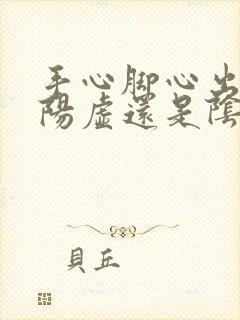 手心脚心出
陽虛還是陰
貝丘